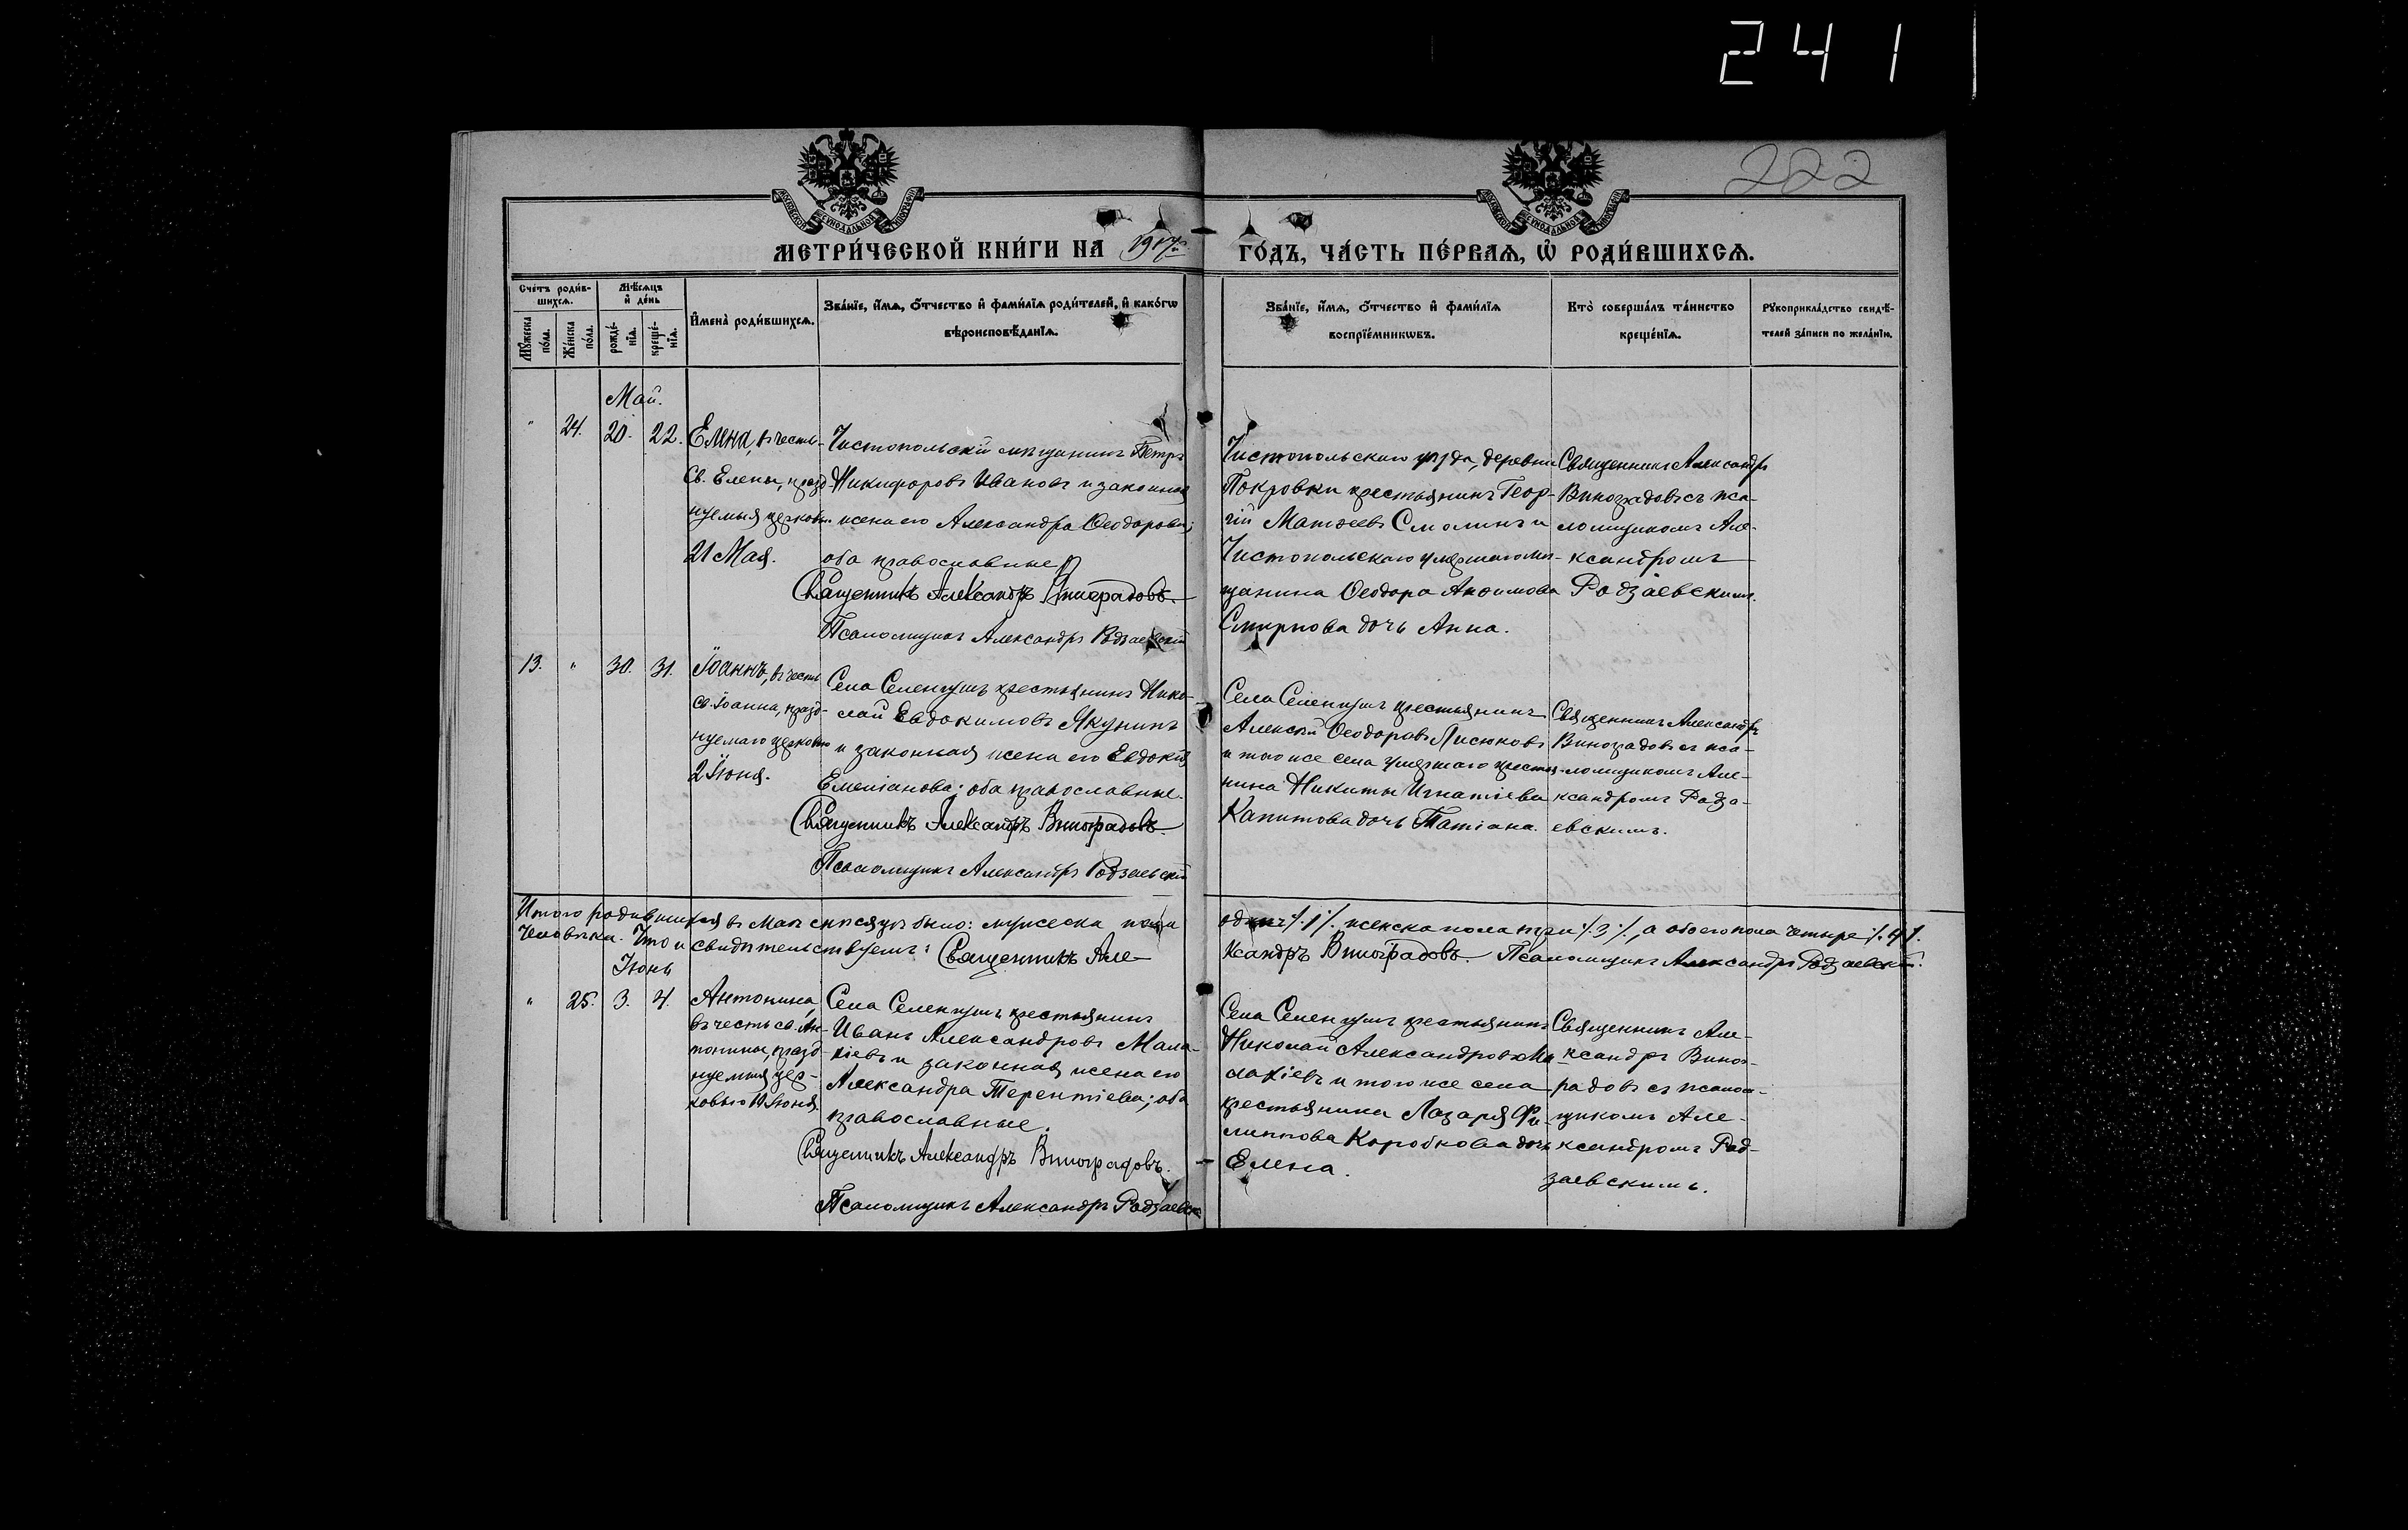 241
222
МЕТРИ́ЧЕСКОЙ КНИ́ГИ НА 1917 ГО́ДЪ, ЧА́СТЬ ПЕ́РВАѦ, Ѡ҆ РОДИ́ВШИХСѦ.
Сче́тъ роди́в-
шихсѧ.
Мꙋ́жеска
по́ла.
Же́нска
по́ла.
Мѣ́сѧцъ
и҆ де́нь
рожде́-
нїѧ.
креще́-
нїѧ.
И҆мена̀ роди́вшихсѧ.
Зва́нїе, и҆́мѧ, ѻ҆́тчество и҆ фами́лїѧ роди́телей, и҆ како́гѡ
вѣроисповѣ́данїѧ.
Зва́нїе, и҆́мѧ, ѻ҆́тчество и҆ фами́лїѧ
воспрїе́мникѡвъ.
Кто̀ соверша́лъ та́инство
креще́нїѧ.
Рꙋкоприкла́дство свидѣ́-
телей за́писи по жела́нїю.
Май.
" 24. 20. 22.
Елена, въ честь
Св. Елены, празд-
нуемыя церковью
21 Мая.
Чистопольскій мѣщанинъ Петръ
Никифоровъ Ивановъ и законная
жена его Александра Ѳеодорова;
оба православные
Священникъ Александръ Виноградовъ.
Псаломщикъ Александръ Радзаевскій
Чистопольскаго уѣзда, деревни
Покровки крестьянинъ Геор-
гій Матѳеевъ Смолинъ и
Чистопольскаго умершаго мѣ-
щанина Ѳеодора Анѳимова
Смирнова дочь Анна.
Священникъ Александръ
Виноградовъ съ пса-
ломщикомъ Але-
ксандромъ
Радзаевскимъ.
13. " 30. 31.
Іоаннъ, въ честь
св. Іоанна, празд-
нуемаго церковью
2 Іюня.
Села Селенгушъ крестьянинъ Нико-
лай Евдокимовъ Якунинъ
и законная жена его Евдокія
Емеліанова; оба православные.
Священникъ Александръ Виноградовъ
Псаломщикъ Александръ Радзаевскій
Села Селенгушъ крестьянинъ
Алексѣй Ѳеодоровъ Лисюковъ
и того же села умершаго крестья-
нина Никиты Игнатіева
Капитова дочь Татіана.
Священникъ Александръ
Виноградовъ съ пса-
ломщикомъ Але-
ксандромъ Радза-
евскимъ.
Итого родившихся въ Маѣ мѣсяцѣ было: мужеска пола одинъ ⁒1⁒, женска пола три ⁒3⁒, а обоего пола четыре ⁒4⁒.
человѣка. Что и свидѣтельствуемъ: Священникъ Але-
ксандръ Виноградовъ. Псаломщикъ Александръ Радзаевскій.
Іюнь
" 25. 3. 4.
Антонина,
въ честь св. Ан-
тонины, празд-
нуемыя цер-
ковью 10 Іюня.
Села Селенгушъ крестьянинъ
Иванъ Александровъ Мала-
хіевъ и законная жена его
Александра Терентіева; оба
православные.
Священникъ Александръ Виноградовъ.
Псаломщикъ Александръ Радзаевск
Села Селенгушъ крестьянинъ
Николай Александровъ Ма-
лахіевъ и того же села
крестьянина Лазаря Фи-
липпова Коробкова дочь
Елена.
Священникъ Але-
ксандръ Виног-
радовъ съ псалом-
щикомъ Але-
ксандромъ Рад-
заевскимъ.